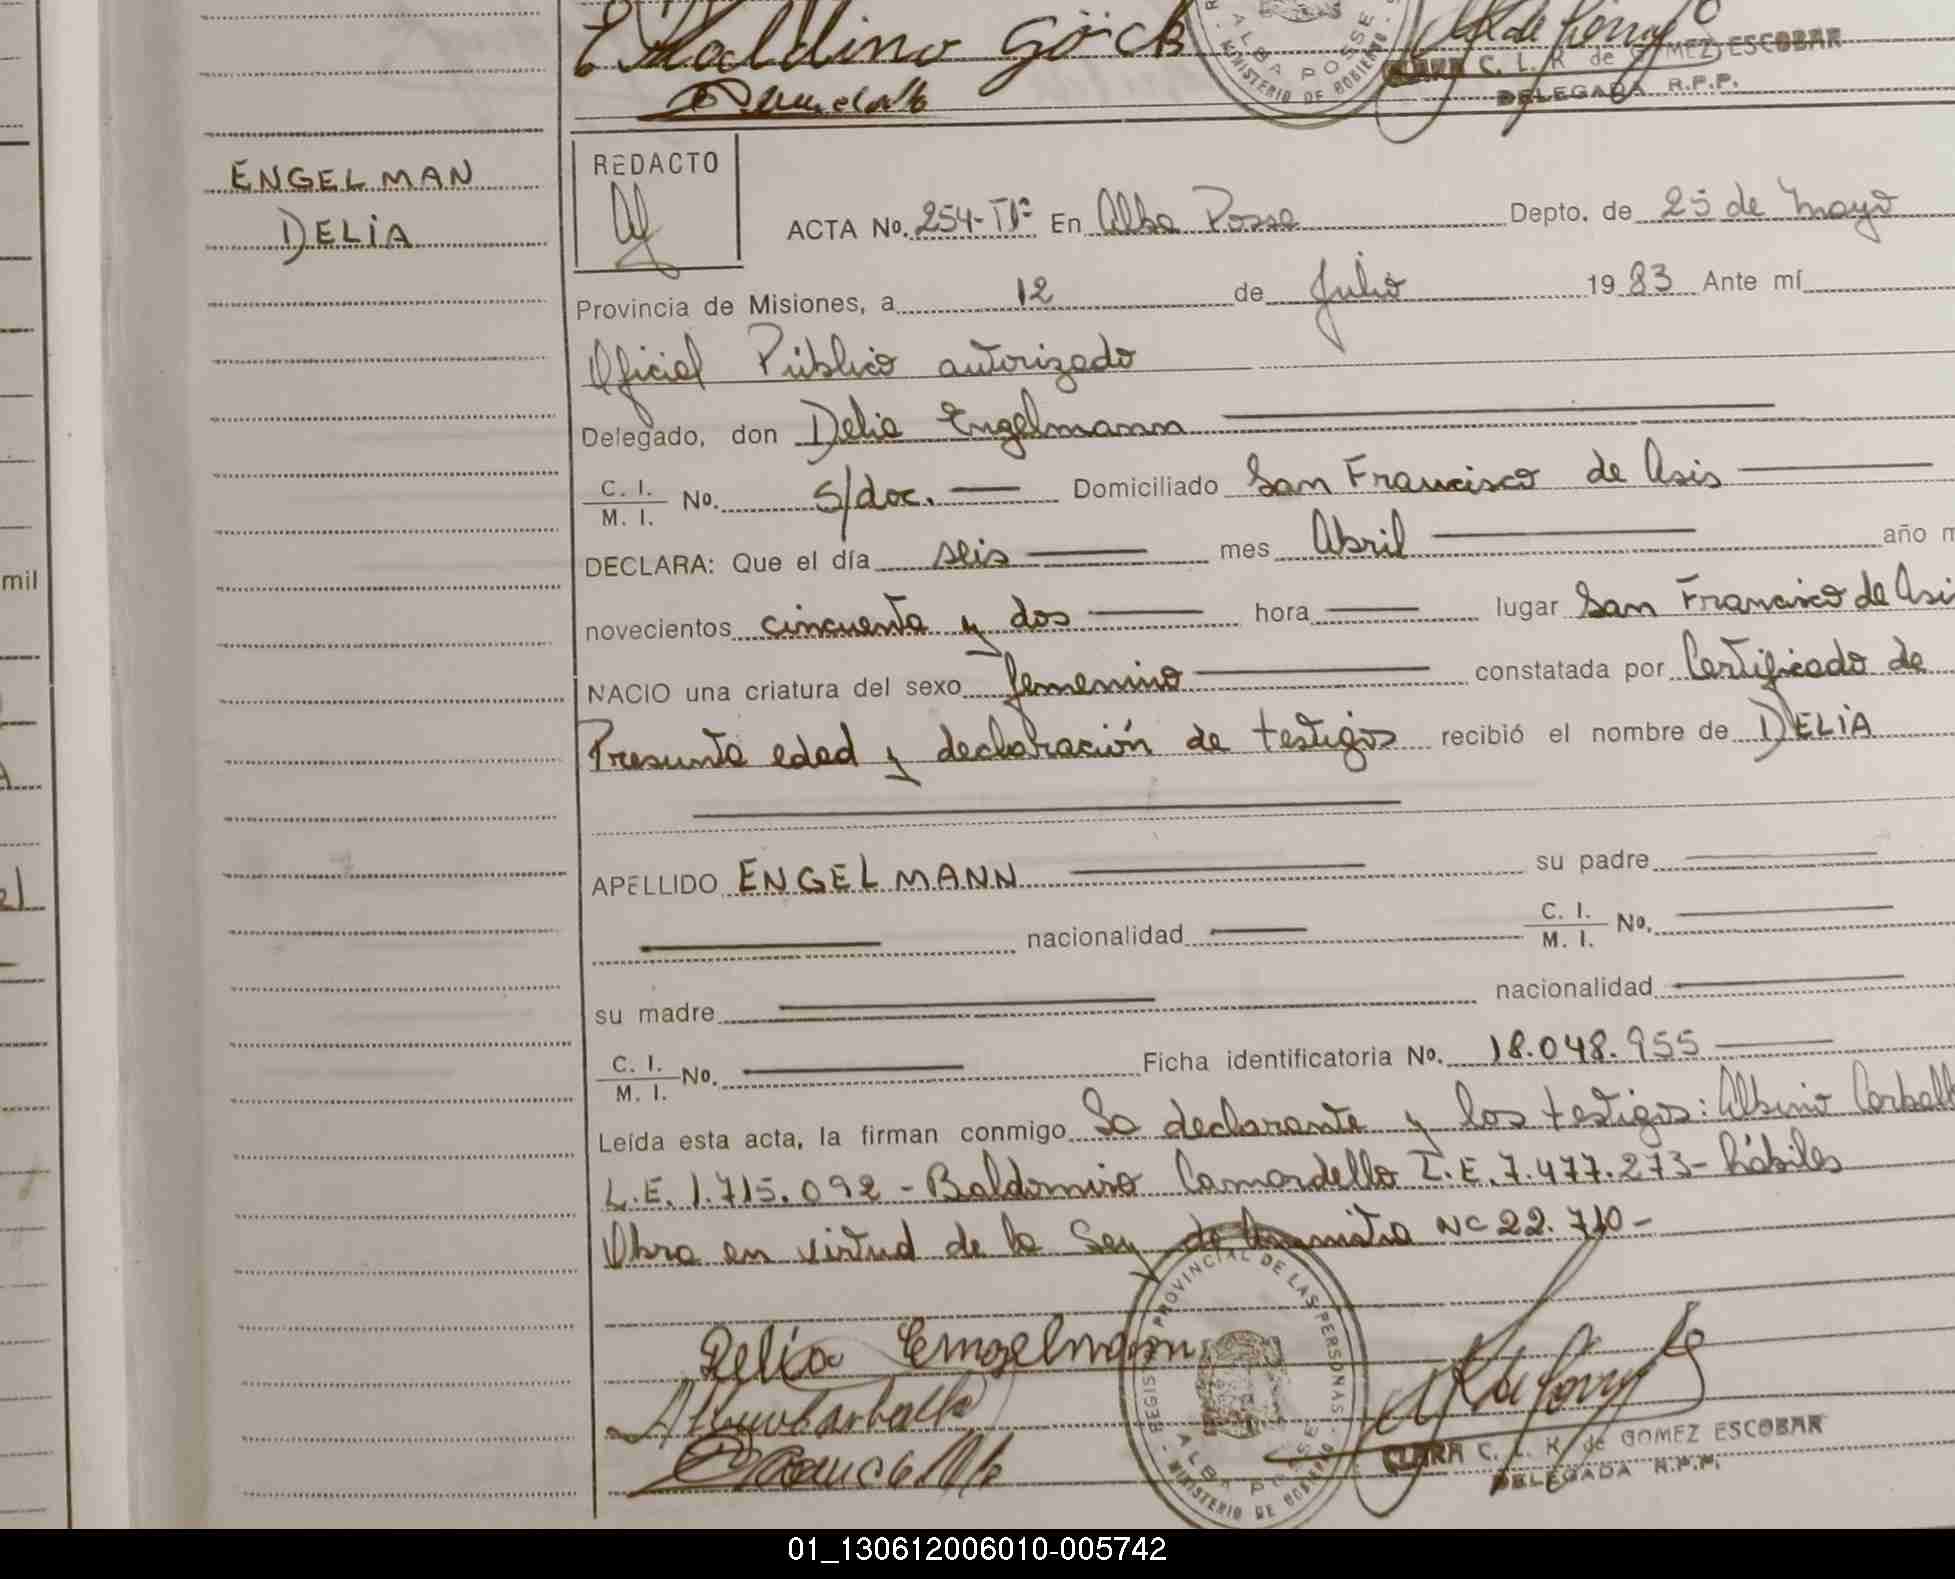 Ewaldino Göck
ALBA POSSE
MINISTERIO DE GOBIERNO
CLARA C. L. K. de GOMEZ ESCOBAR
DELEGADA R.P.P.
ENGELMAN
DELIA
REDACTO
ACTA No. 254-Tº En Alba Posse Depto. de 25 de Mayo
Provincia de Misiones, a 12 de Julio 1983 Ante mí
Oficial Público autorizado
Delegado, don Delia Engelmann
C. I.
M. I. No. s/doc. Domiciliado San Francisco de Asis
DECLARA: Que el día seis mes Abril año m
novecientos cincuenta y dos hora lugar San Francisco de Asi
NACIO una criatura del sexo femenino constatada por Certificado de
Presunta edad y declaración de testigos recibió el nombre de DELIA
APELLIDO ENGELMANN su padre
nacionalidad C. I.
M. I. No.
su madre nacionalidad
C. I.
M. I. No. Ficha identificatoria No. 18.048.955
Leída esta acta, la firman conmigo La declarante y los testigos: Albino Carball
L.E. 1.715.092 - Baldomiro Camardello L.E. 7.477.273 - hábiles
Obra en virtud de la Ley de Amnistia Nº 22.710-
Delia Engelmann
REGISTRO PROVINCIAL DE LAS PERSONAS
ALBA POSSE
MINISTERIO DE GOBIERNO
CLARA C. L. K. de GOMEZ ESCOBAR
DELEGADA R.P.P.
mil
01_130612006010-005742